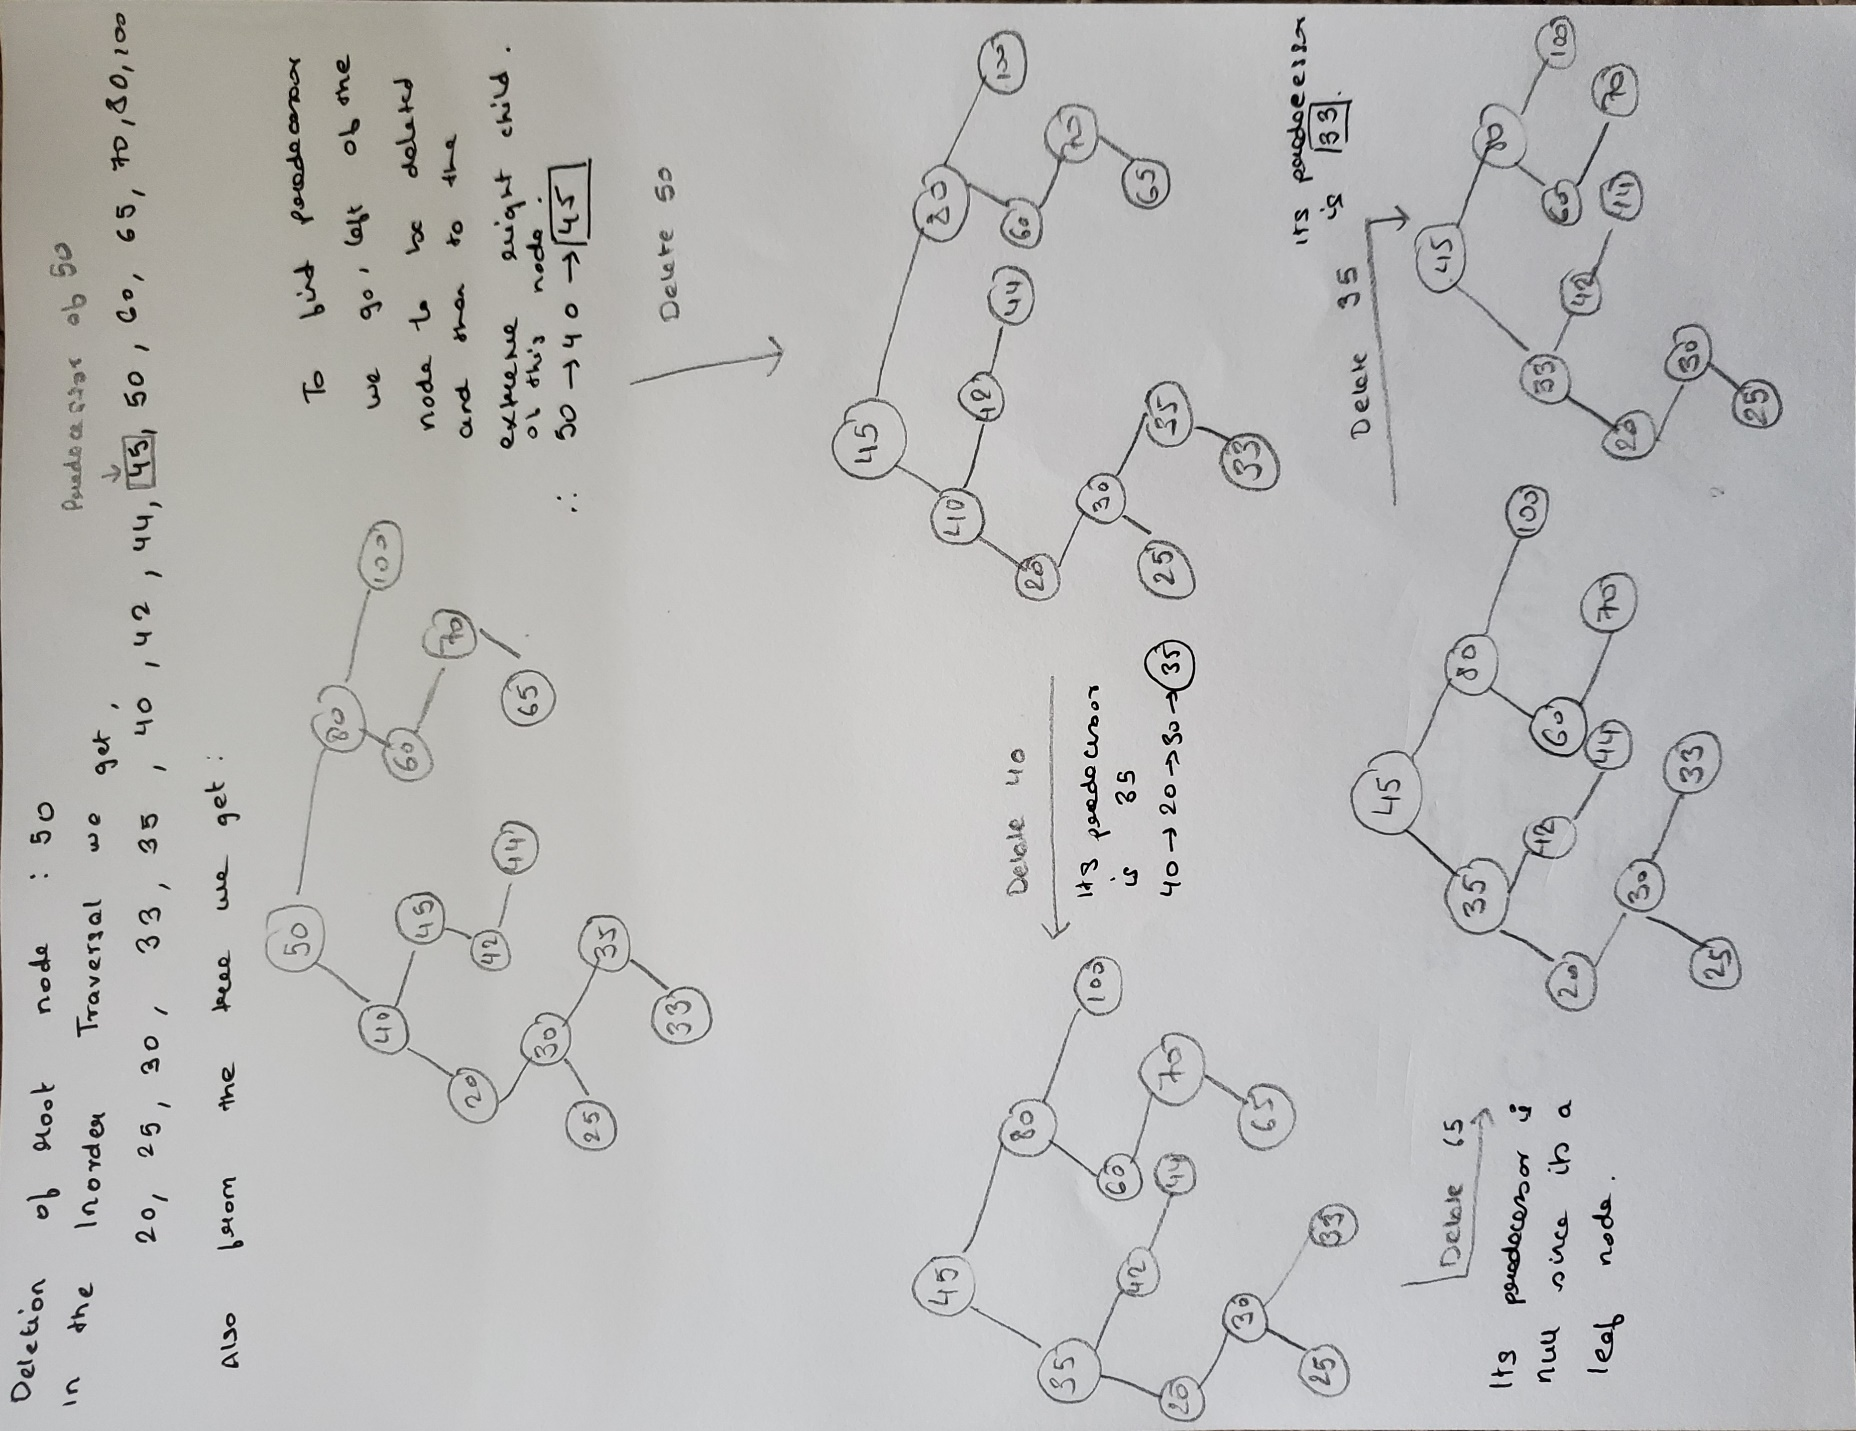 Deletion of root node : 50
In the Inorder Traversal we get,
Predecessor of 50
20, 25, 30, 33, 35, 40, 42, 44, 45, 50, 60, 65, 70, 80, 100
Also from the tree we get :
50
40
80
20
45
60
100
30
42
70
25
35
44
65
33
To find predecessor
we go, left of the
node to be deleted
and then to the
extreme right child.
of this node.
∴ 50 → 40 → 45
Delete 50
45
40
80
20
42
60
100
30
44
70
25
35
65
33
Delete 40
Its predecessor
is 35
40 → 20 → 30 → 35
45
35
80
20
42
60
100
30
44
70
25
33
65
Delete 65
Its predecessor is
null since its a
leaf node.
45
35
80
20
42
60
100
30
44
70
25
33
Delete 35
its predecessor
is 33.
45
33
80
20
42
60
100
30
44
70
25